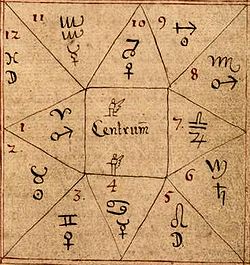 11 10 9
♒ ☿
♑ ♀
♐ ☉
12
♓ ☽
8
♏ ♂
1
♈ ♂
Centrum
7.
♎ ♃
2
♉ ☉
6
♍ ♄
3. 4 5
♊ ♀
♋ ☿
♌ ☽